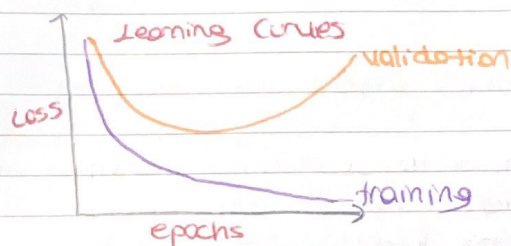 Learning Curves
validation
Loss
training
epochs